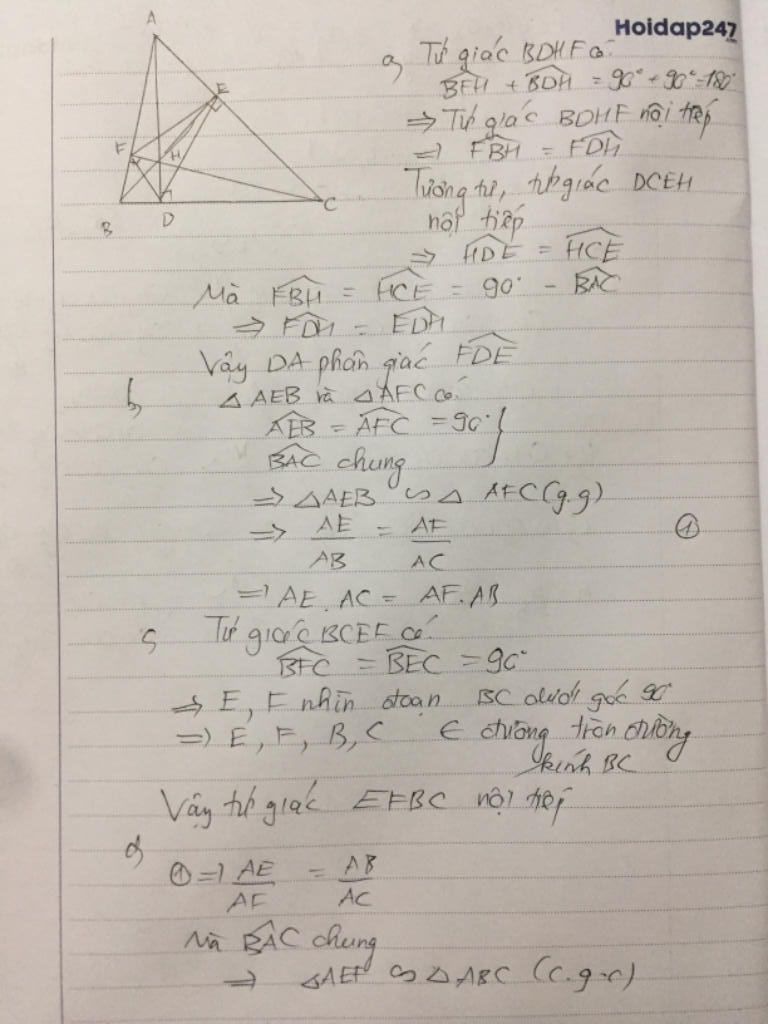 Hoidap247
.com
A
E
F
H
B
D
C
a, Tứ giác BDHF có:
BFH + BDH = 90° + 90° = 180°
=> Tứ giác BDHF nội tiếp
=> FBH = FDH
Tương tự, tứ giác DCEH
nội tiếp
=> HDE = HCE
Mà FBH = HCE = 90° - BAC
=> FDH = EDH
Vậy DA phân giác FDE
b, △ AEB và △ AFC có:
AEB = AFC = 90°
BAC chung
=> △AEB ∽ △ AFC (g.g)
=> AE/AB = AF/AC ①
=> AE. AC = AF. AB
c, Tứ giác BCEF có:
BFC = BEC = 90°
=> E, F nhìn đoạn BC dưới góc 90°
=> E, F, B, C ∈ đường tròn đường
kính BC
Vậy tứ giác EFBC nội tiếp
d, ① => AE/AF = AB/AC
Mà BAC chung
=> △AEF ∽ △ABC (c.g.c)